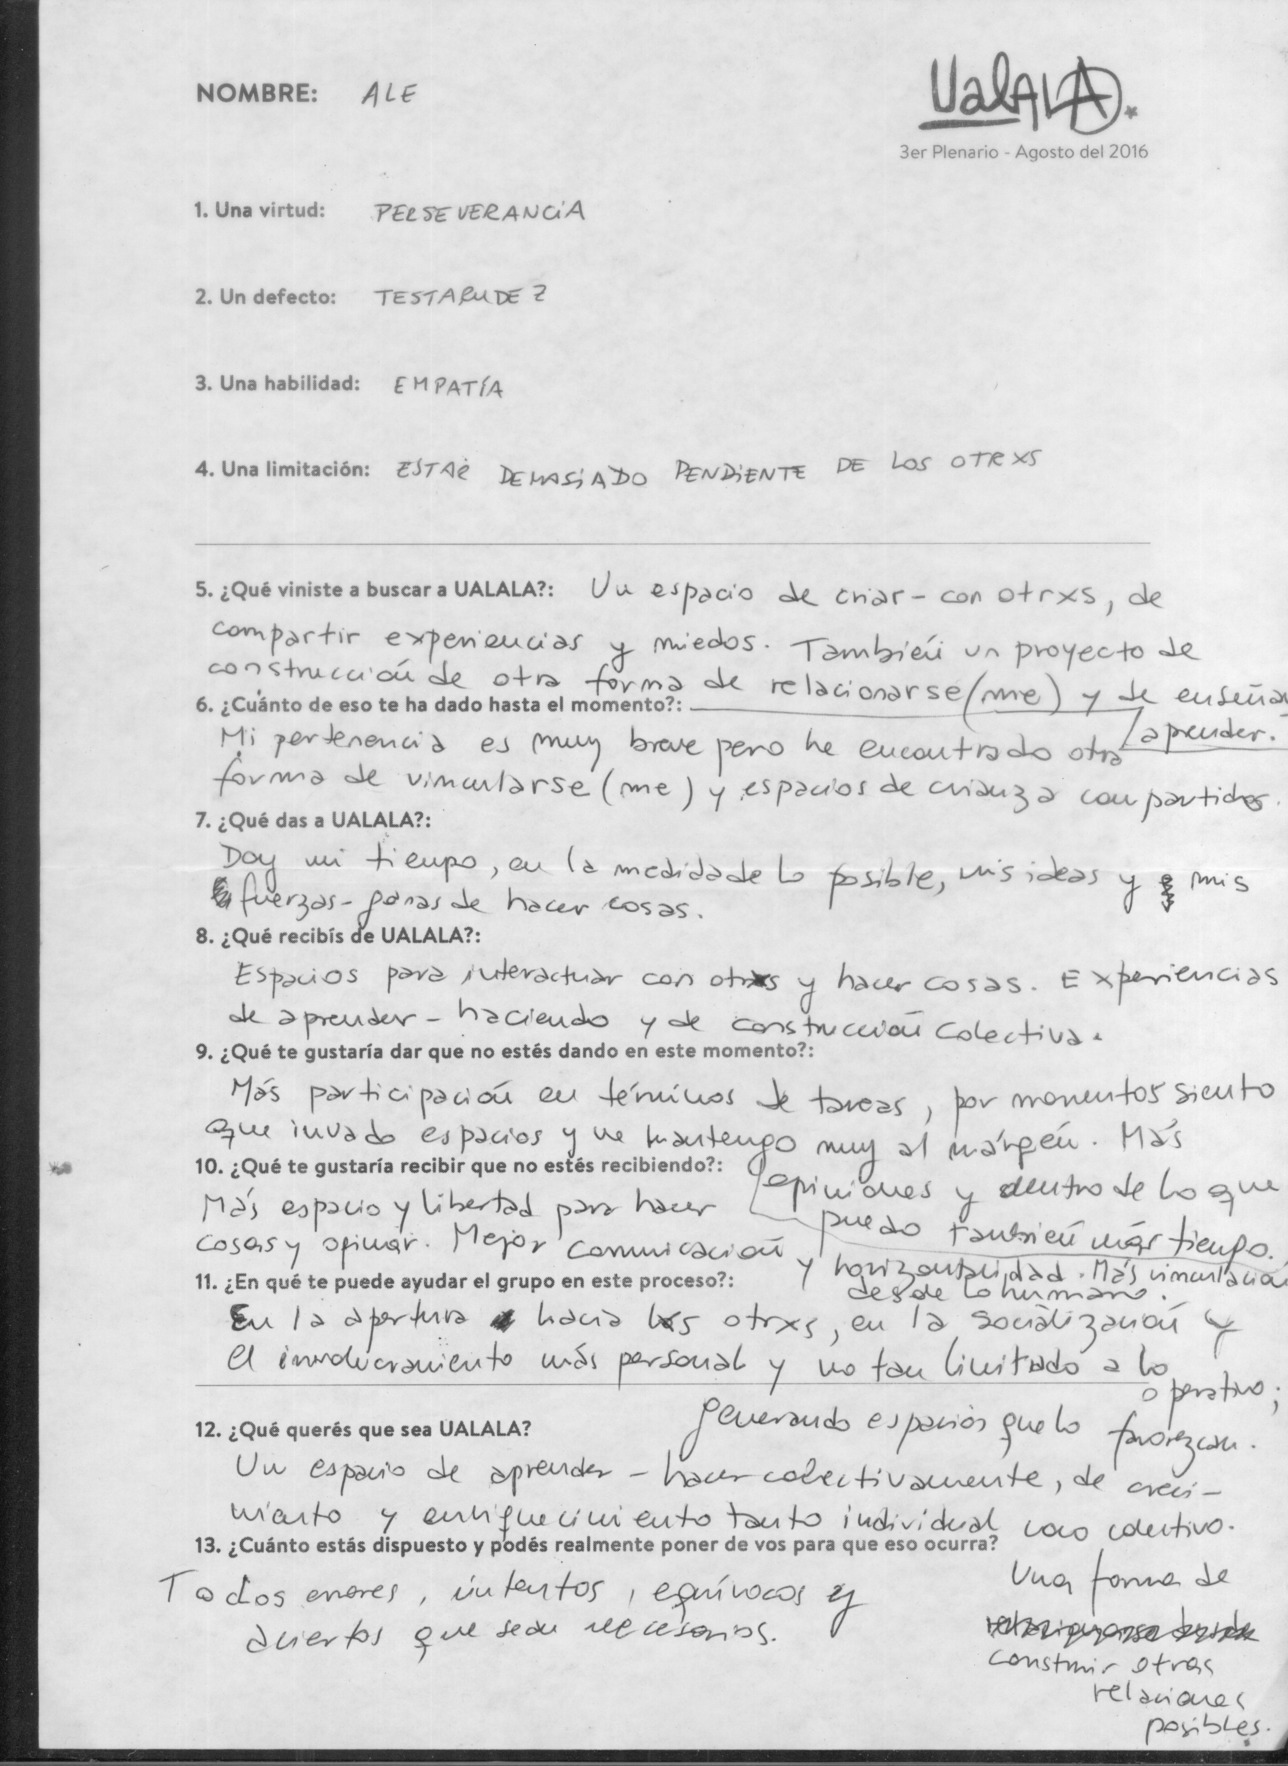 NOMBRE: ALE
UalALA
3er Plenario - Agosto del 2016
1. Una virtud: PERSEVERANCiA
2. Un defecto: TESTARUDEZ
3. Una habilidad: EMPATÍA
4. Una limitación: ESTAR DEMASiADO PENDiENTE DE LOS OTRXS
5. ¿Qué viniste a buscar a UALALA?: Un espacio de criar-con otrxs, de
compartir experiencias y miedos. También un proyecto de
construcción de otra forma de relacionarse(me) y de enseñar
aprender.
6. ¿Cuánto de eso te ha dado hasta el momento?:
Mi pertenencia es muy breve pero he encontrado otra
forma de vincularse(me) y espacios de crianza compartidos.
7. ¿Qué das a UALALA?:
Doy mi tiempo, en la medida de lo posible, mis ideas y mis
fuerzas-ganas de hacer cosas.
8. ¿Qué recibís de UALALA?:
Espacios para interactuar con otrxs y hacer cosas. Experiencias
de aprender-haciendo y de construcción colectiva.
9. ¿Qué te gustaría dar que no estés dando en este momento?:
Más participación en términos de tareas, por momentos siento
que invado espacios y me mantengo muy al márgen. Más
opiniones y dentro de lo que
puedo también más tiempo.
10. ¿Qué te gustaría recibir que no estés recibiendo?:
Más espacio y libertad para hacer
cosas y opinar. Mejor comunicación y horizontalidad. Más vinculación
desde lo humano.
11. ¿En qué te puede ayudar el grupo en este proceso?:
En la apertura hacia lxs otrxs, en la socialización y
el involucramiento más personal y no tan limitado a lo
operativo;
generando espacios que lo favorezcan.
12. ¿Qué querés que sea UALALA?
Un espacio de aprender-hacer colectivamente, de creci-
miento y enriquecimiento tanto individual como colectivo.
Una forma de
construir otras
relaciones
posibles.
13. ¿Cuánto estás dispuesto y podés realmente poner de vos para que eso ocurra?
Todos errores, intentos, equívocos y
aciertos que sean necesarios.